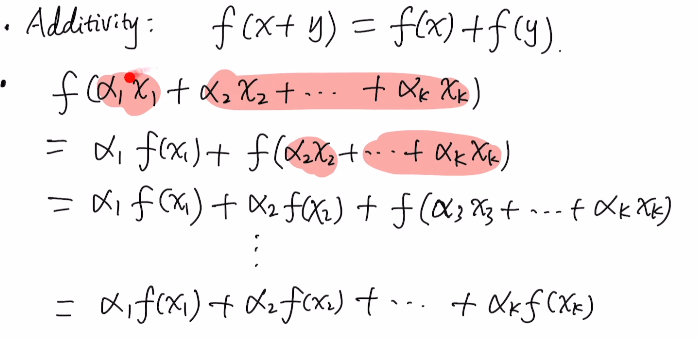 · Additivity: f(x+y) = f(x)+f(y).
· f(α₁x₁ + α₂x₂ + ... + αₖxₖ)
= α₁f(x₁) + f(α₂x₂ + ... + αₖxₖ)
= α₁f(x₁) + α₂f(x₂) + f(α₃x₃ + ... + αₖxₖ)
⋮
= α₁f(x₁) + α₂f(x₂) + ... + αₖf(xₖ)